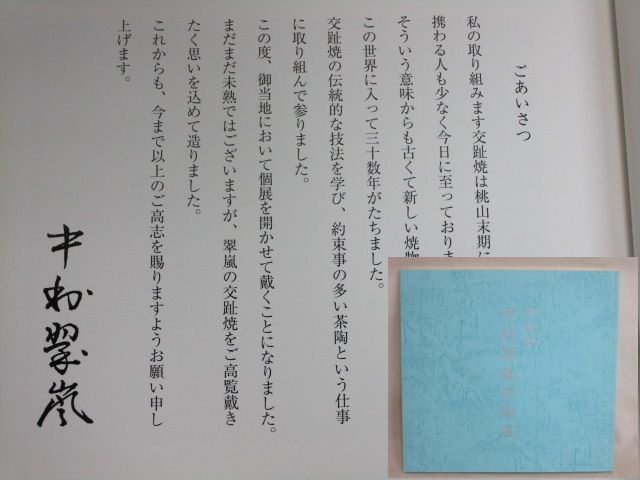 ごあいさつ
私の取り組みます交趾焼は桃山末期に
携わる人も少なく今日に至っておりま
そういう意味からも古くて新しい焼物
この世界に入って三十数年がたちました。
交趾焼の伝統的な技法を学び、約束事の多い茶陶という仕事
に取り組んで参りました。
この度、御当地において個展を開かせて戴くことになりました。
まだまだ未熟ではございますが、翠嵐の交趾焼をご高覧戴き
たく思いを込めて造りました。
これからも、今まで以上のご高志を賜りますようお願い申し
上げます。
中村翠嵐